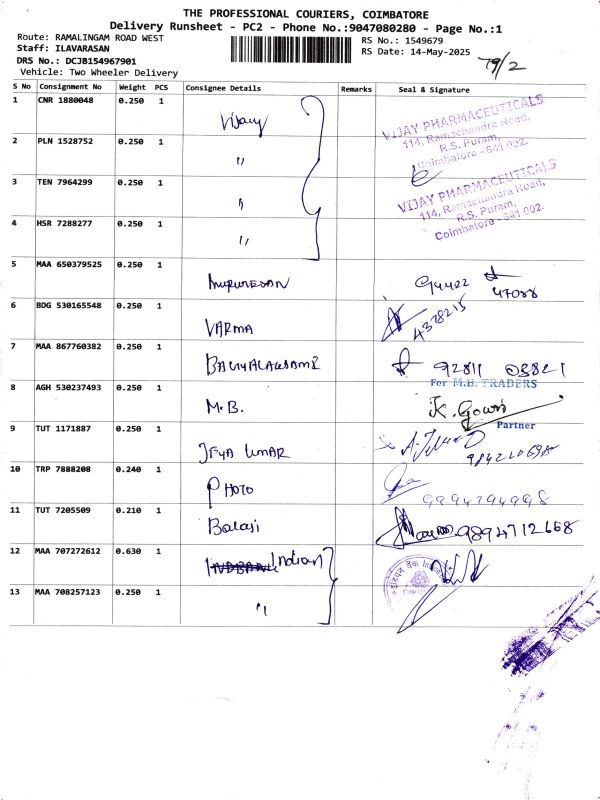 THE PROFESSIONAL COURIERS, COIMBATORE
Delivery Runsheet - PC2 - Phone No.:9047080280 - Page No.:1
Route: RAMALINGAM ROAD WEST
Staff: ILAVARASAN
DRS No.: DCJB154967901
Vehicle: Two Wheeler Delivery
RS No.: 1549679
RS Date: 14-May-2025
S No Consignment No Weight PCS Consignee Details Remarks Seal & Signature
1 CNR 1880048 0.250 1 Vijay
VIJAY PHARMACEUTICALS
114, Ramachandra Road,
R.S. Puram,
Coimbatore - 641 002.
2 PLN 1528752 0.250 1 "
3 TEN 7964299 0.250 1 "
VIJAY PHARMACEUTICALS
114, Ramachandra Road,
R.S. Puram,
Coimbatore - 641 002.
4 HSR 7288277 0.250 1 "
5 MAA 650379525 0.250 1 Murugesan
47088
6 BDG 530165548 0.250 1 VARMA
7 MAA 867760382 0.250 1
92811 03821
8 AGH 530237493 0.250 1 M.B.
For M.B. TRADERS
K. Gowri
Partner
9 TUT 1171887 0.250 1 JEYA KUMAR
10 TRP 7888208 0.240 1 PHOTO
9994794998
11 TUT 7205509 0.210 1 Balaji
9894712668
12 MAA 707272612 0.630 1 Indian
13 MAA 708257123 0.250 1 "